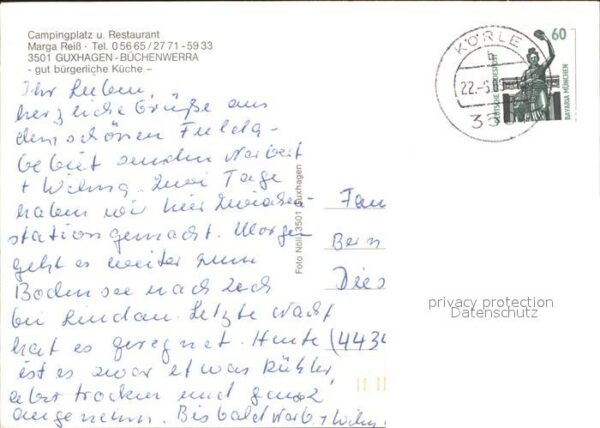 Campingplatz u. Restaurant
Marga Reiß · Tel. 0 56 65 / 27 71 - 59 33
3501 GUXHAGEN - BÜCHENWERRA
- gut bürgerliche Küche -
Ihr Lieben,
herzliche Grüße aus
dem schönen Fulda-
gebiet senden Norbert
+ Wilma. Zwei Tage
haben wir hier Zwischen-
station gemacht. Morgen
geht es weiter zum
Bodensee nach Zech
bei Lindau. Letzte Nacht
hat es geregnet. Heute
ist es zwar etwas kühler,
aber trocken und ganz
angenehm. Bis bald Norb. + Wilm
Foto Nöll, 3501 Guxhagen
KÖRLE
b
22.-6.89
350
60
DEUTSCHE BUNDESPOST
BAVARIA MÜNCHEN
Fam
Bern
Dies
(4434
privacy protection
Datenschutz